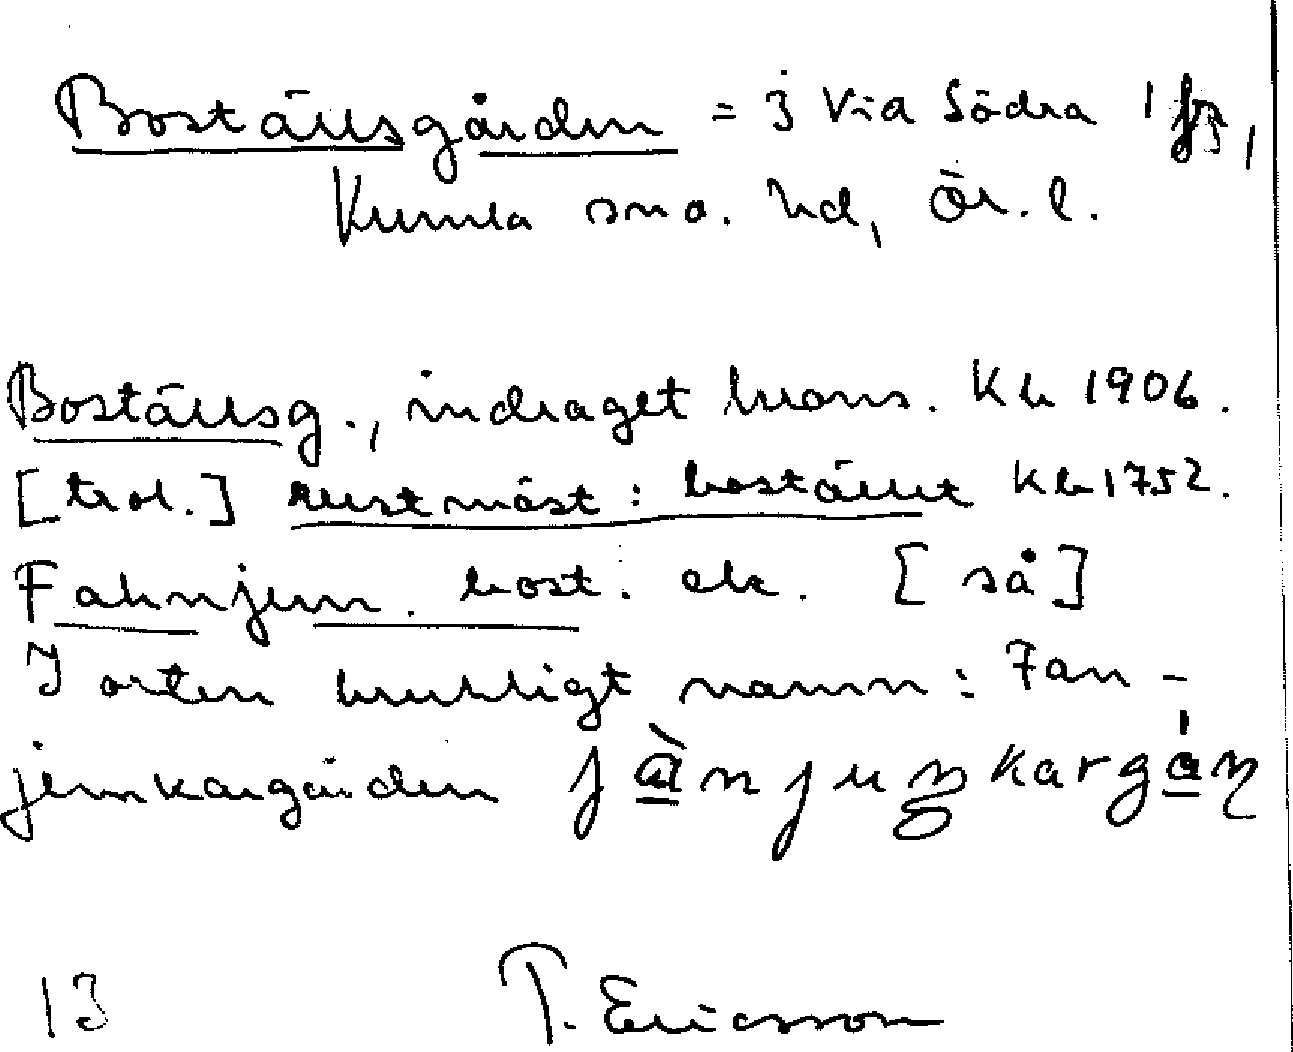 Boställsgården = i Via Södra 1 fs,
Kumla sn o. hd, Ör. l.
Boställsg., indraget krons. Kb 1906.
[trol.] rustmäst: bostället Kb 1752.
Fahnjun. bost. etc. [så]
I orten brukligt namn: Fan-
junkargården
13 T. Ericsson